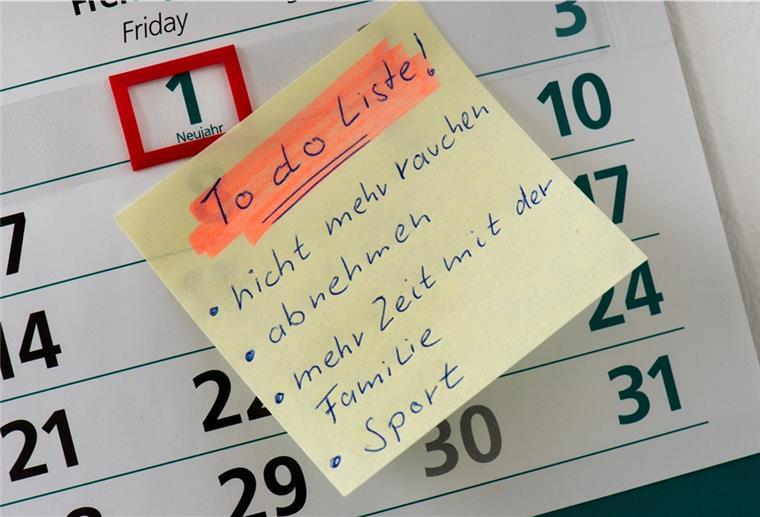 Friday
1
Neujahr
3
To do Liste!
• nicht mehr rauchen
• abnehmen
• mehr Zeit mit der
Familie
• Sport
10
7
17
14
24
21
22
31
29
30